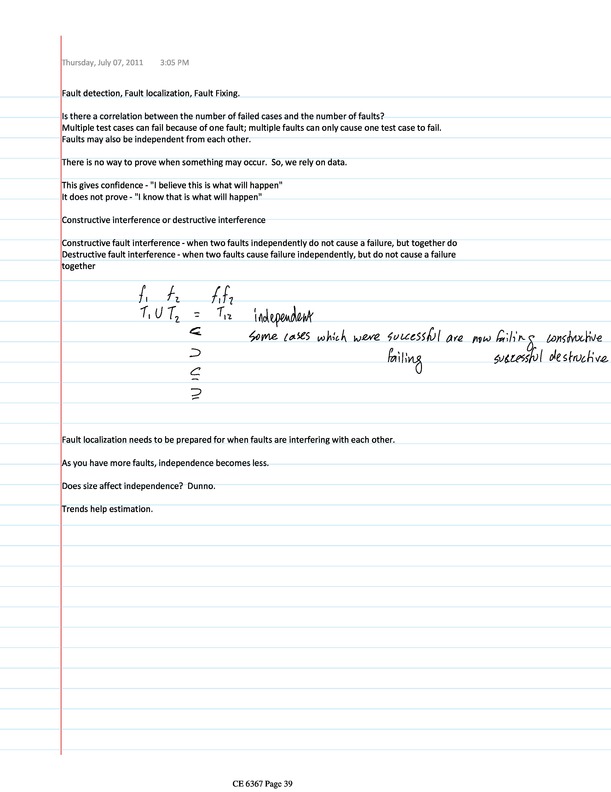 Thursday, July 07, 2011 3:05 PM
Fault detection, Fault localization, Fault Fixing.
Is there a correlation between the number of failed cases and the number of faults?
Multiple test cases can fail because of one fault; multiple faults can only cause one test case to fail.
Faults may also be independent from each other.
There is no way to prove when something may occur. So, we rely on data.
This gives confidence - "I believe this is what will happen"
It does not prove - "I know that is what will happen"
Constructive interference or destructive interference
Constructive fault interference - when two faults independently do not cause a failure, but together do
Destructive fault interference - when two faults cause failure independently, but do not cause a failure
together
f₁ f₂ f₁f₂
T₁ ∪ T₂ = T₁₂ independent
⊂ some cases which were successful are now failing constructive
⊃ failing successful destructive
⊆
⊇
Fault localization needs to be prepared for when faults are interfering with each other.
As you have more faults, independence becomes less.
Does size affect independence? Dunno.
Trends help estimation.
CE 6367 Page 39